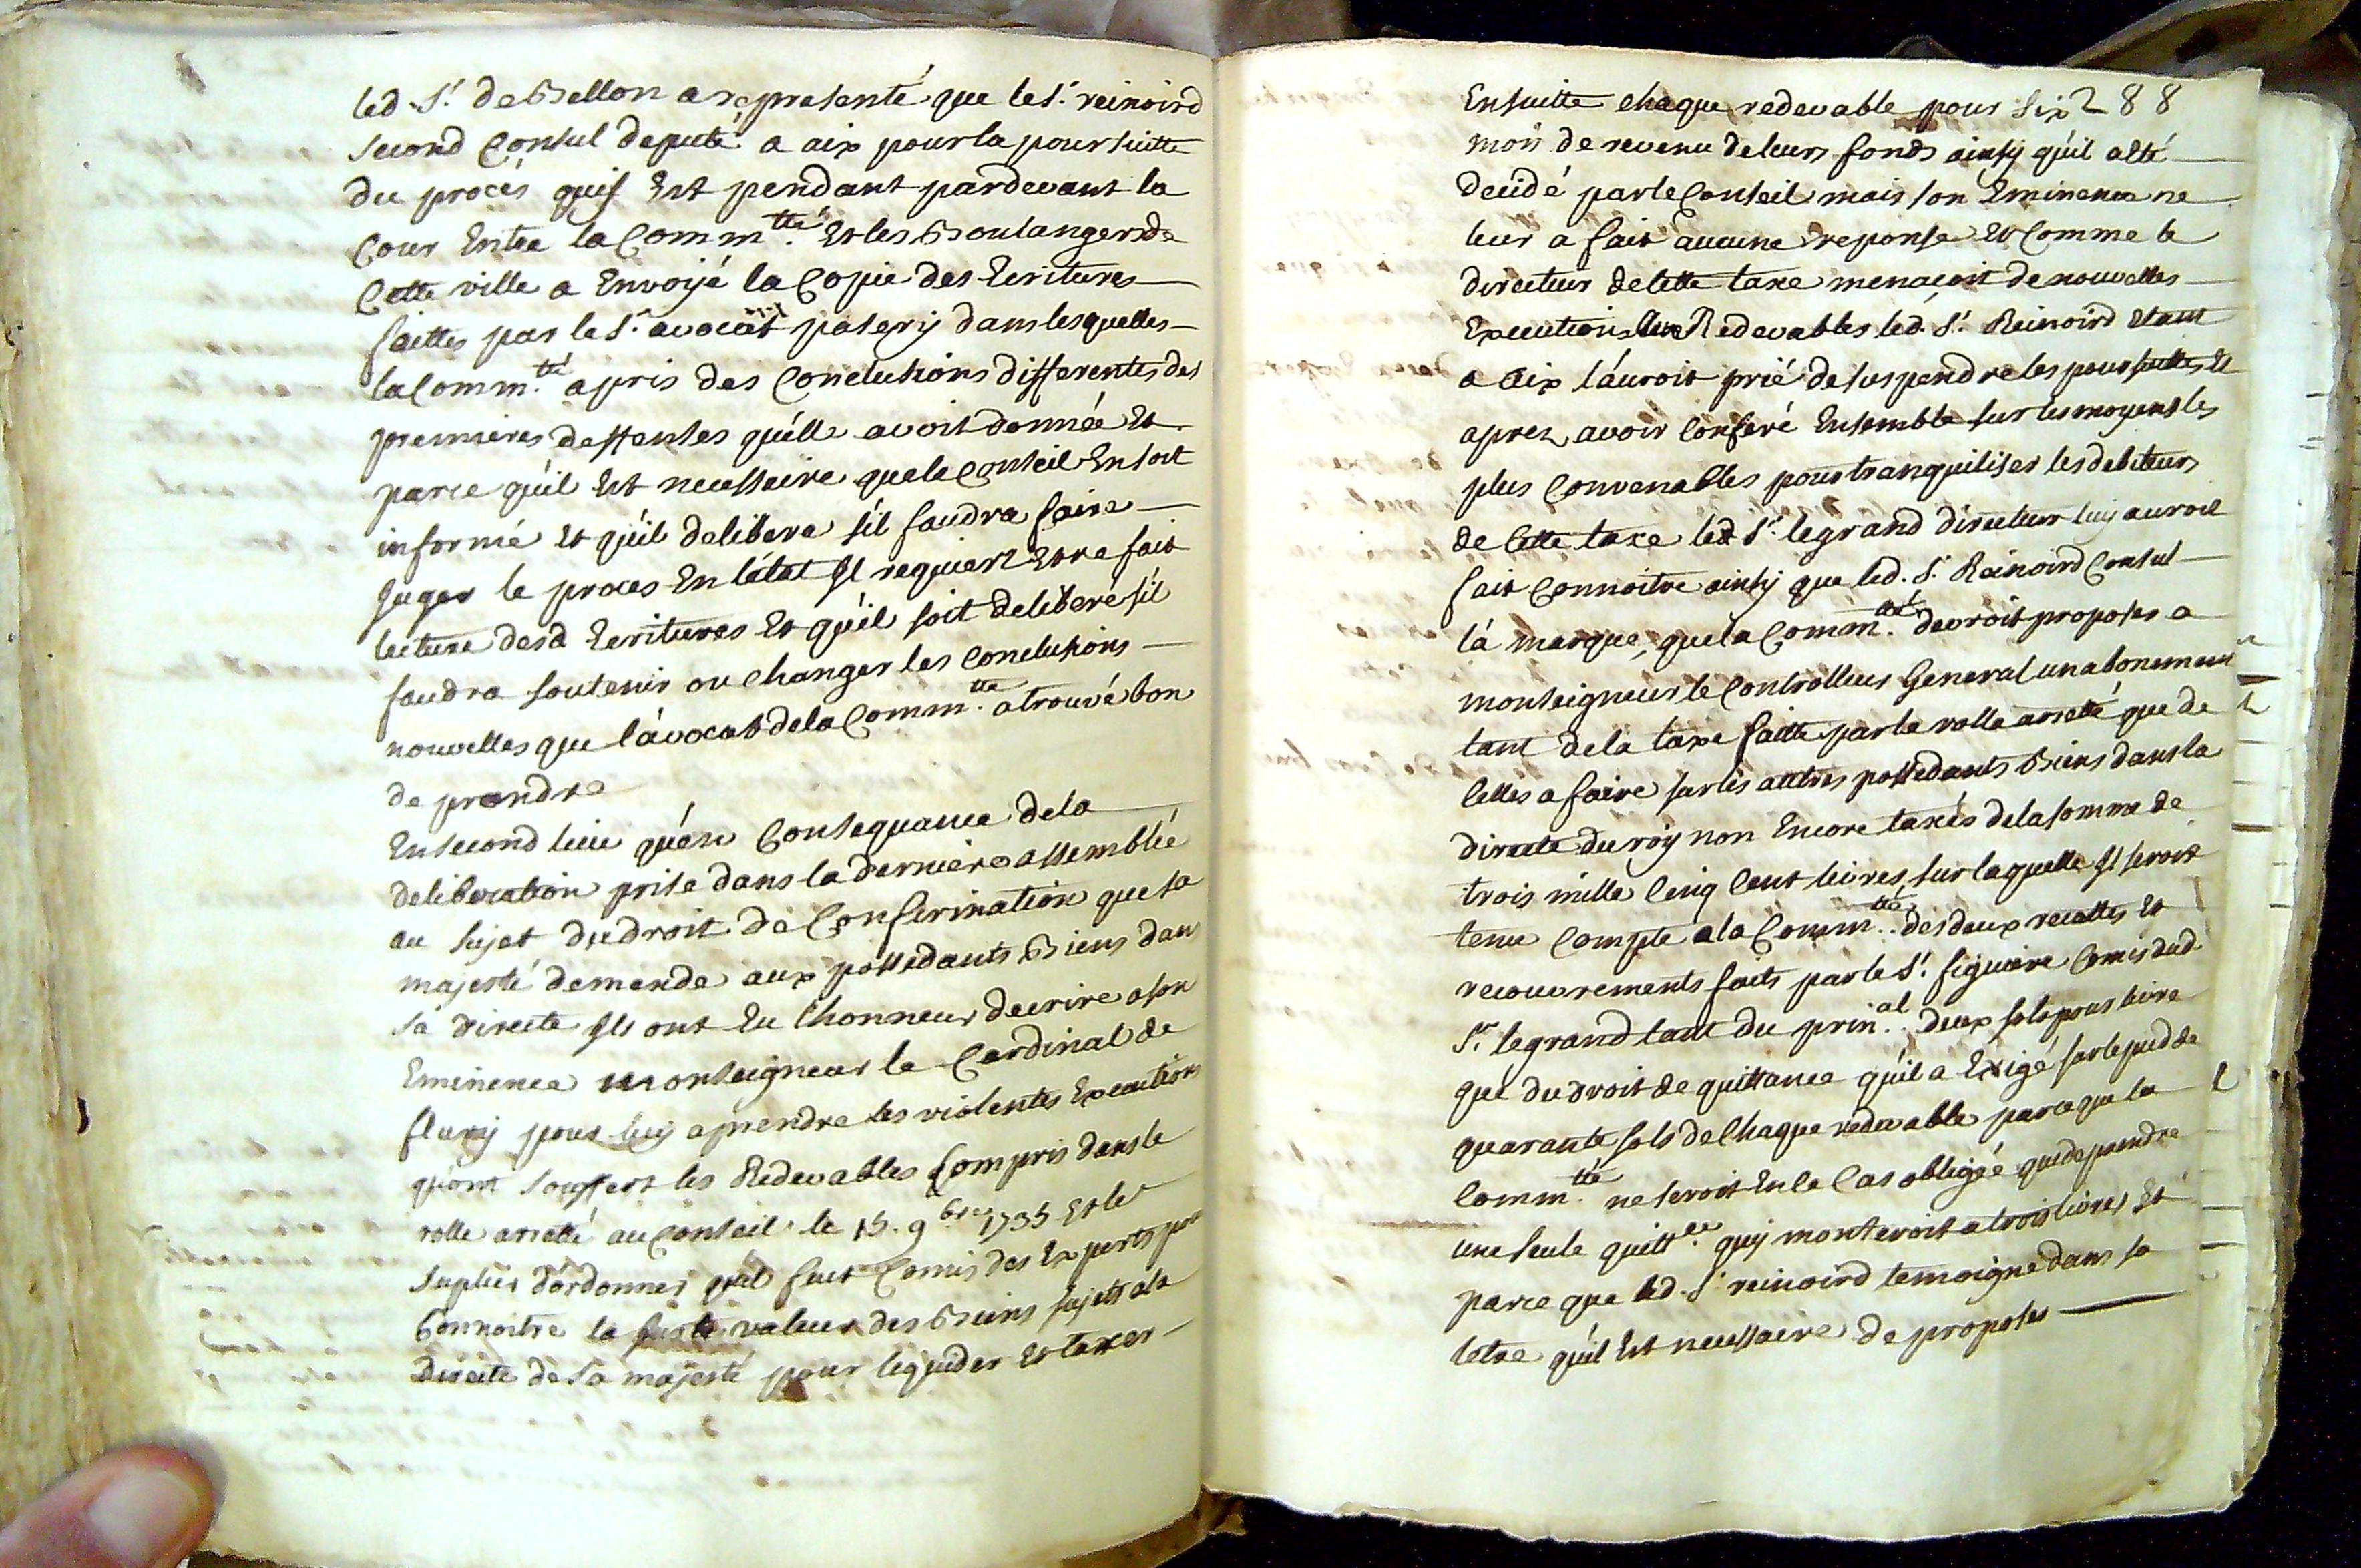 led. S.r de Bellon a representé que le S.r reinoird
second Consul deputé a aix pour la poursuitte
du procés quij Est pendant pardevant la
Cour Entre la Comm.tté Et les Boulangers de
Cette ville a Envoijé la Copie des Ecritures
faittes par le S.r avocat paserij dans lesquelles
la Comm.tté a pris des Conclusions differentes des
premieres deffenses qu'elle avoit donnée Et
parce qu'il Est necessaire que le Conseil En soit
informé Et qu'il delibere s'il faudra faire
Juger le proces En l'état Il requiert Etre fait
lecture desd Ecritures Et qu'il soit deliberé s'il
faudra soutenir ou changer les Conclusions
nouvelles que l'avocat de la Comm.tté a trouvé bon
de prendre
En second lieu qu'en Consequance de la
deliberation prise dans la derniere assemblée
au sujet du droit de Confirmation que sa
majesté demende aux possedants Biens dans
sa directe Ils ont Eu l'honneur d'ecrire a son
Eminence monseigneur le Cardinal de
flurij pour luij aprendre les violentes Executions
qu'ont souffert les Redevables Compris dans le
rolle arretté au Conseil le 15. 9bre 1735 Et le
suplier d'ordonner qu'il fut Comis des Experts pour
Connoitre la juste valeur des Biens sujets a la
directe de sa majesté pour liquider Et taxer
288
Ensuitte chaque redevable pour six
mois de revenu de leurs fonds ainsij qu'il a eté
decidé par le Conseil mais son Eminence ne
leur a fait aucune reponse Et Comme le
directeur de cette taxe menaçoit de nouvelles
Executions les Redevables led. S.r Reinoird Etant
a Aix l'auroit prié de suspendre les poursuittes Et
aprez avoir Conferé Ensemble sur les moyens les
plus Convenables pour tranquiliser les debiteurs
de Cette taxe led S.r legrand directeur luij auroit
fait Connoitre ainsij que led. S.r Reinoird Consul
l'a marqué, que la Comm.tté devroit proposer a
monseigneur le Controlleur General un abonement
tant de la taxe faitte par le rolle arretté que de
Celles a faire sur les autres possedants Biens dans la
directe du roij non Encore taxés de la somme de
trois mille Cinq Cent livres sur laquelle Il seroit
tenu Compte a la Comm.tté des deux recettes Et
recouvrements faits par le S.r figuiere Comis dud
S.r legrand tant du prin.al deux sols pour livre
que du droit de quittance qu'il a Exigé sur le pied de
quarante sols de Chaque redevable parce que la
Comm.tté ne seroit En Ce Cas obligée que de prendre
une seule quitt.ce quij monteroit a trois livres Et
parce que led. S.r reinoird temoigne dans sa
letre qu'il Est necessaire de proposer